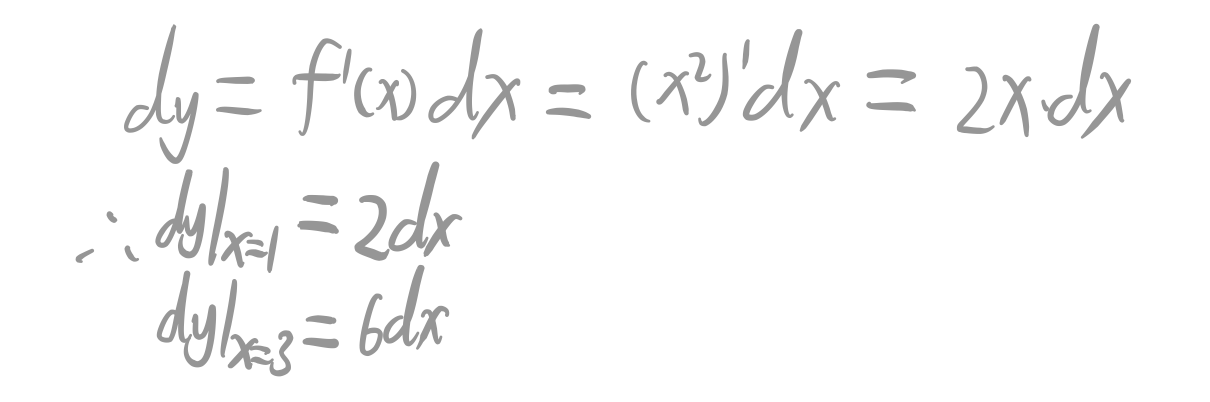 dy = f'(x) dx = (x²)'dx = 2x·dx
∴ dy|x=1 = 2dx
dy|x=3 = 6dx